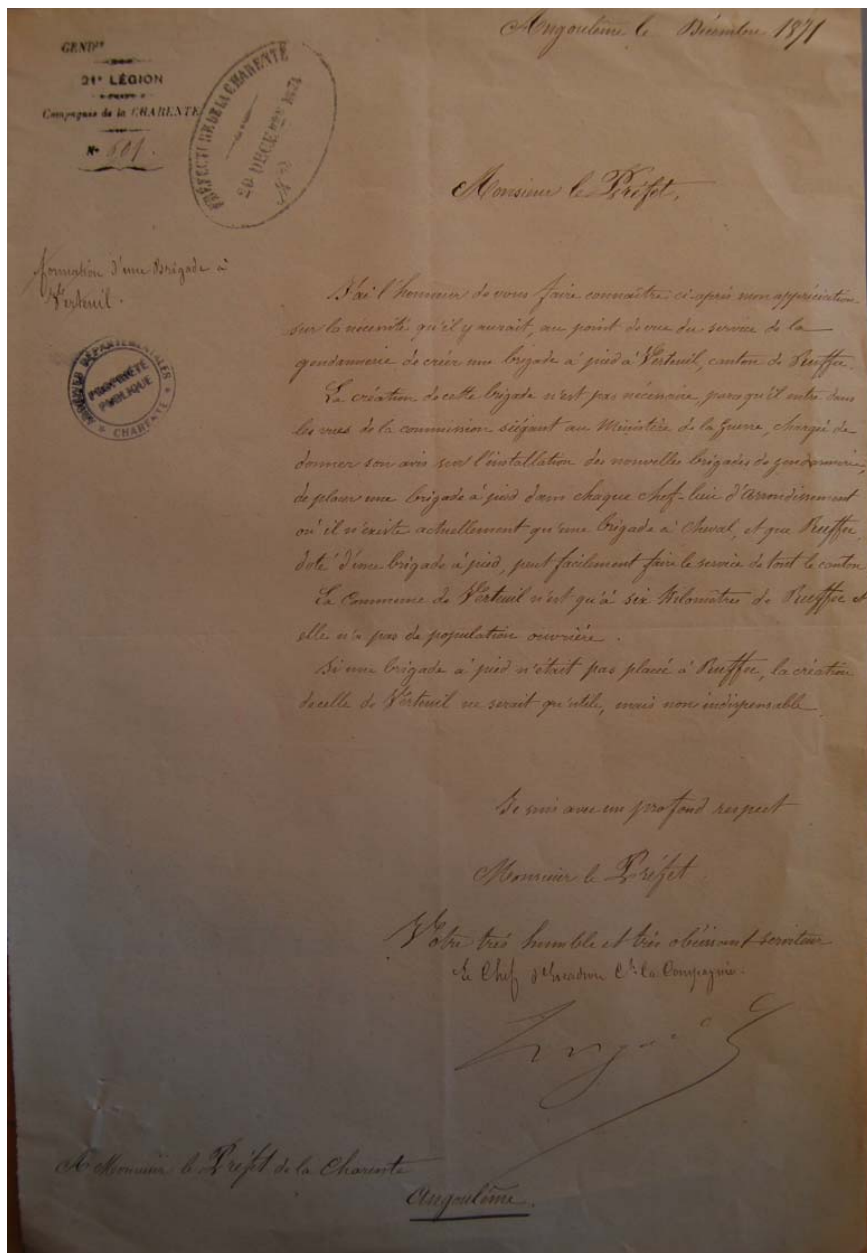 Angoulême le Décembre 1871
GEND^rie
21^e LÉGION
Compagnie de la CHARENTE
N^o 601.
PRÉFECTURE DE LA CHARENTE
20 DÉCEMBRE 1871
Monsieur le Préfet,
formation d'une Brigade à
Verteuil.
ARCHIVES DÉPARTEMENTALES
PROPRIÉTÉ
PUBLIQUE
* CHARENTE *
J'ai l'honneur de vous faire connaître ci-après mon appréciation
sur la nécessité qu'il y aurait, au point de vue du service de la
gendarmerie de créer une brigade à pied à Verteuil, canton de Ruffec.
La création de cette brigade n'est pas nécessaire, parce qu'il entre dans
les vues de la commission siégeant au Ministère de la Guerre, chargée de
donner son avis sur l'installation des nouvelles brigades de gendarmerie,
de placer une brigade à pied dans chaque chef-lieu d'arrondissement
où il n'existe actuellement qu'une brigade à cheval, et que Ruffec,
doté d'une brigade à pied, peut facilement faire le service de tout le canton
La Commune de Verteuil n'est qu'à six Kilomètres de Ruffec et
elle n'a pas de population ouvrière.
Si une brigade à pied n'était pas placée à Ruffec, la création
de celle de Verteuil ne serait qu'utile, mais non indispensable.
Je suis avec un profond respect
Monsieur le Préfet
Votre très humble et très obéissant serviteur
Le Chef d'Escadron C^t la Compagnie.
A Monsieur le Préfet de la Charente
Angoulême.